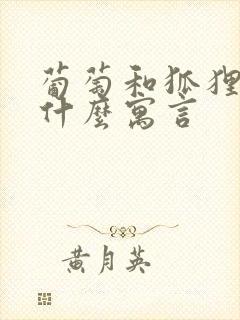 葡萄和狐狸
什麼寓言
黄月英